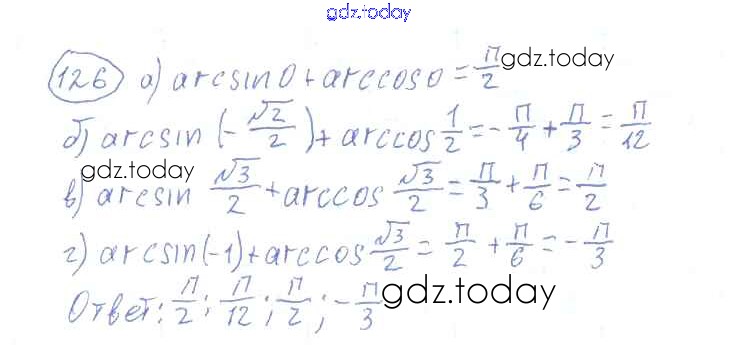 gdz.today
126 а) arcsin 0 + arccos 0 = π/2 gdz.today
б) arcsin (-√2/2) + arccos 1/2 = -π/4 + π/3 = π/12
gdz.today
в) arcsin √3/2 + arccos √3/2 = π/3 + π/6 = π/2
г) arcsin(-1) + arccos √3/2 = π/2 + π/6 = -π/3
Ответ: π/2; π/12; π/2; -π/3 gdz.today